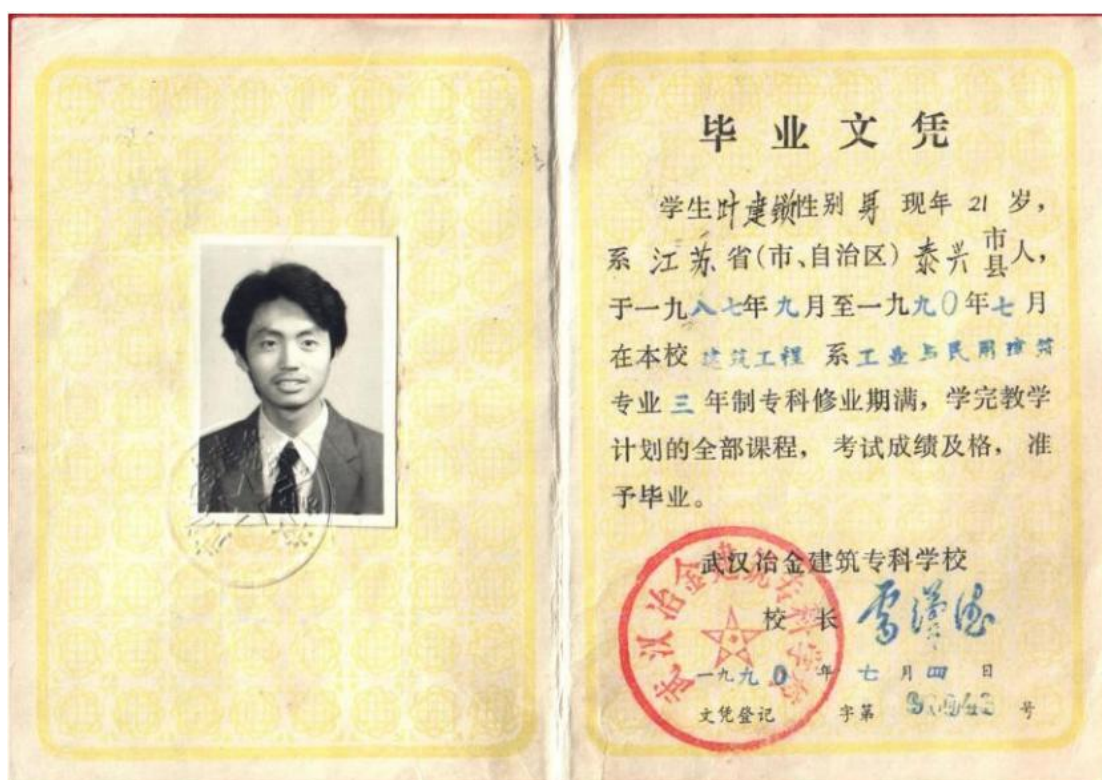 毕业文凭
学生叶建锁性别男 现年 21 岁，
系 江苏 省(市、自治区) 泰兴 市县人，
于一九八七年九月至一九九0年七月
在本校 建筑工程 系 工业与民用建筑
专业 三 年制专科修业期满，学完教学
计划的全部课程， 考试成绩及格， 准
予毕业。
武汉冶金建筑专科学校
武汉冶金建筑专科学校
校 长
一九九0 年 七 月 四 日
文凭登记 字第 号